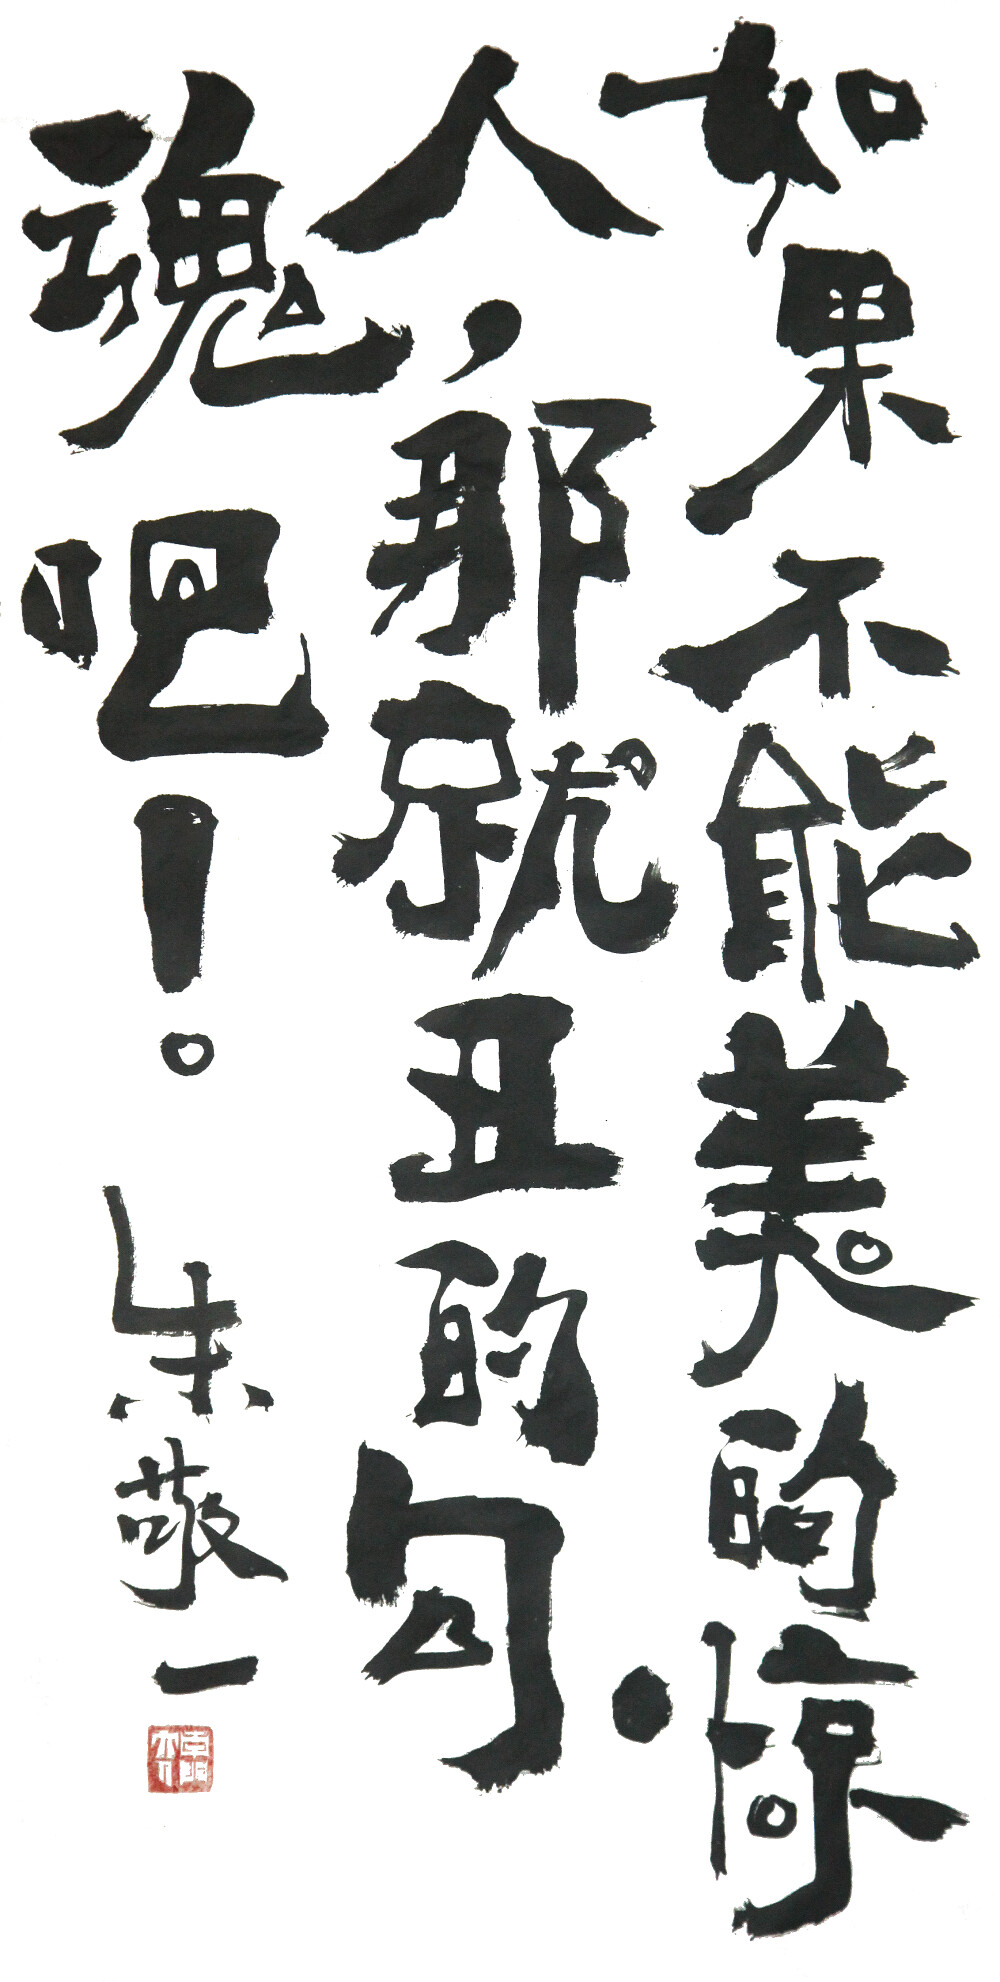 如果不能美的惊
人，那就丑的勾
魂吧！朱敬一